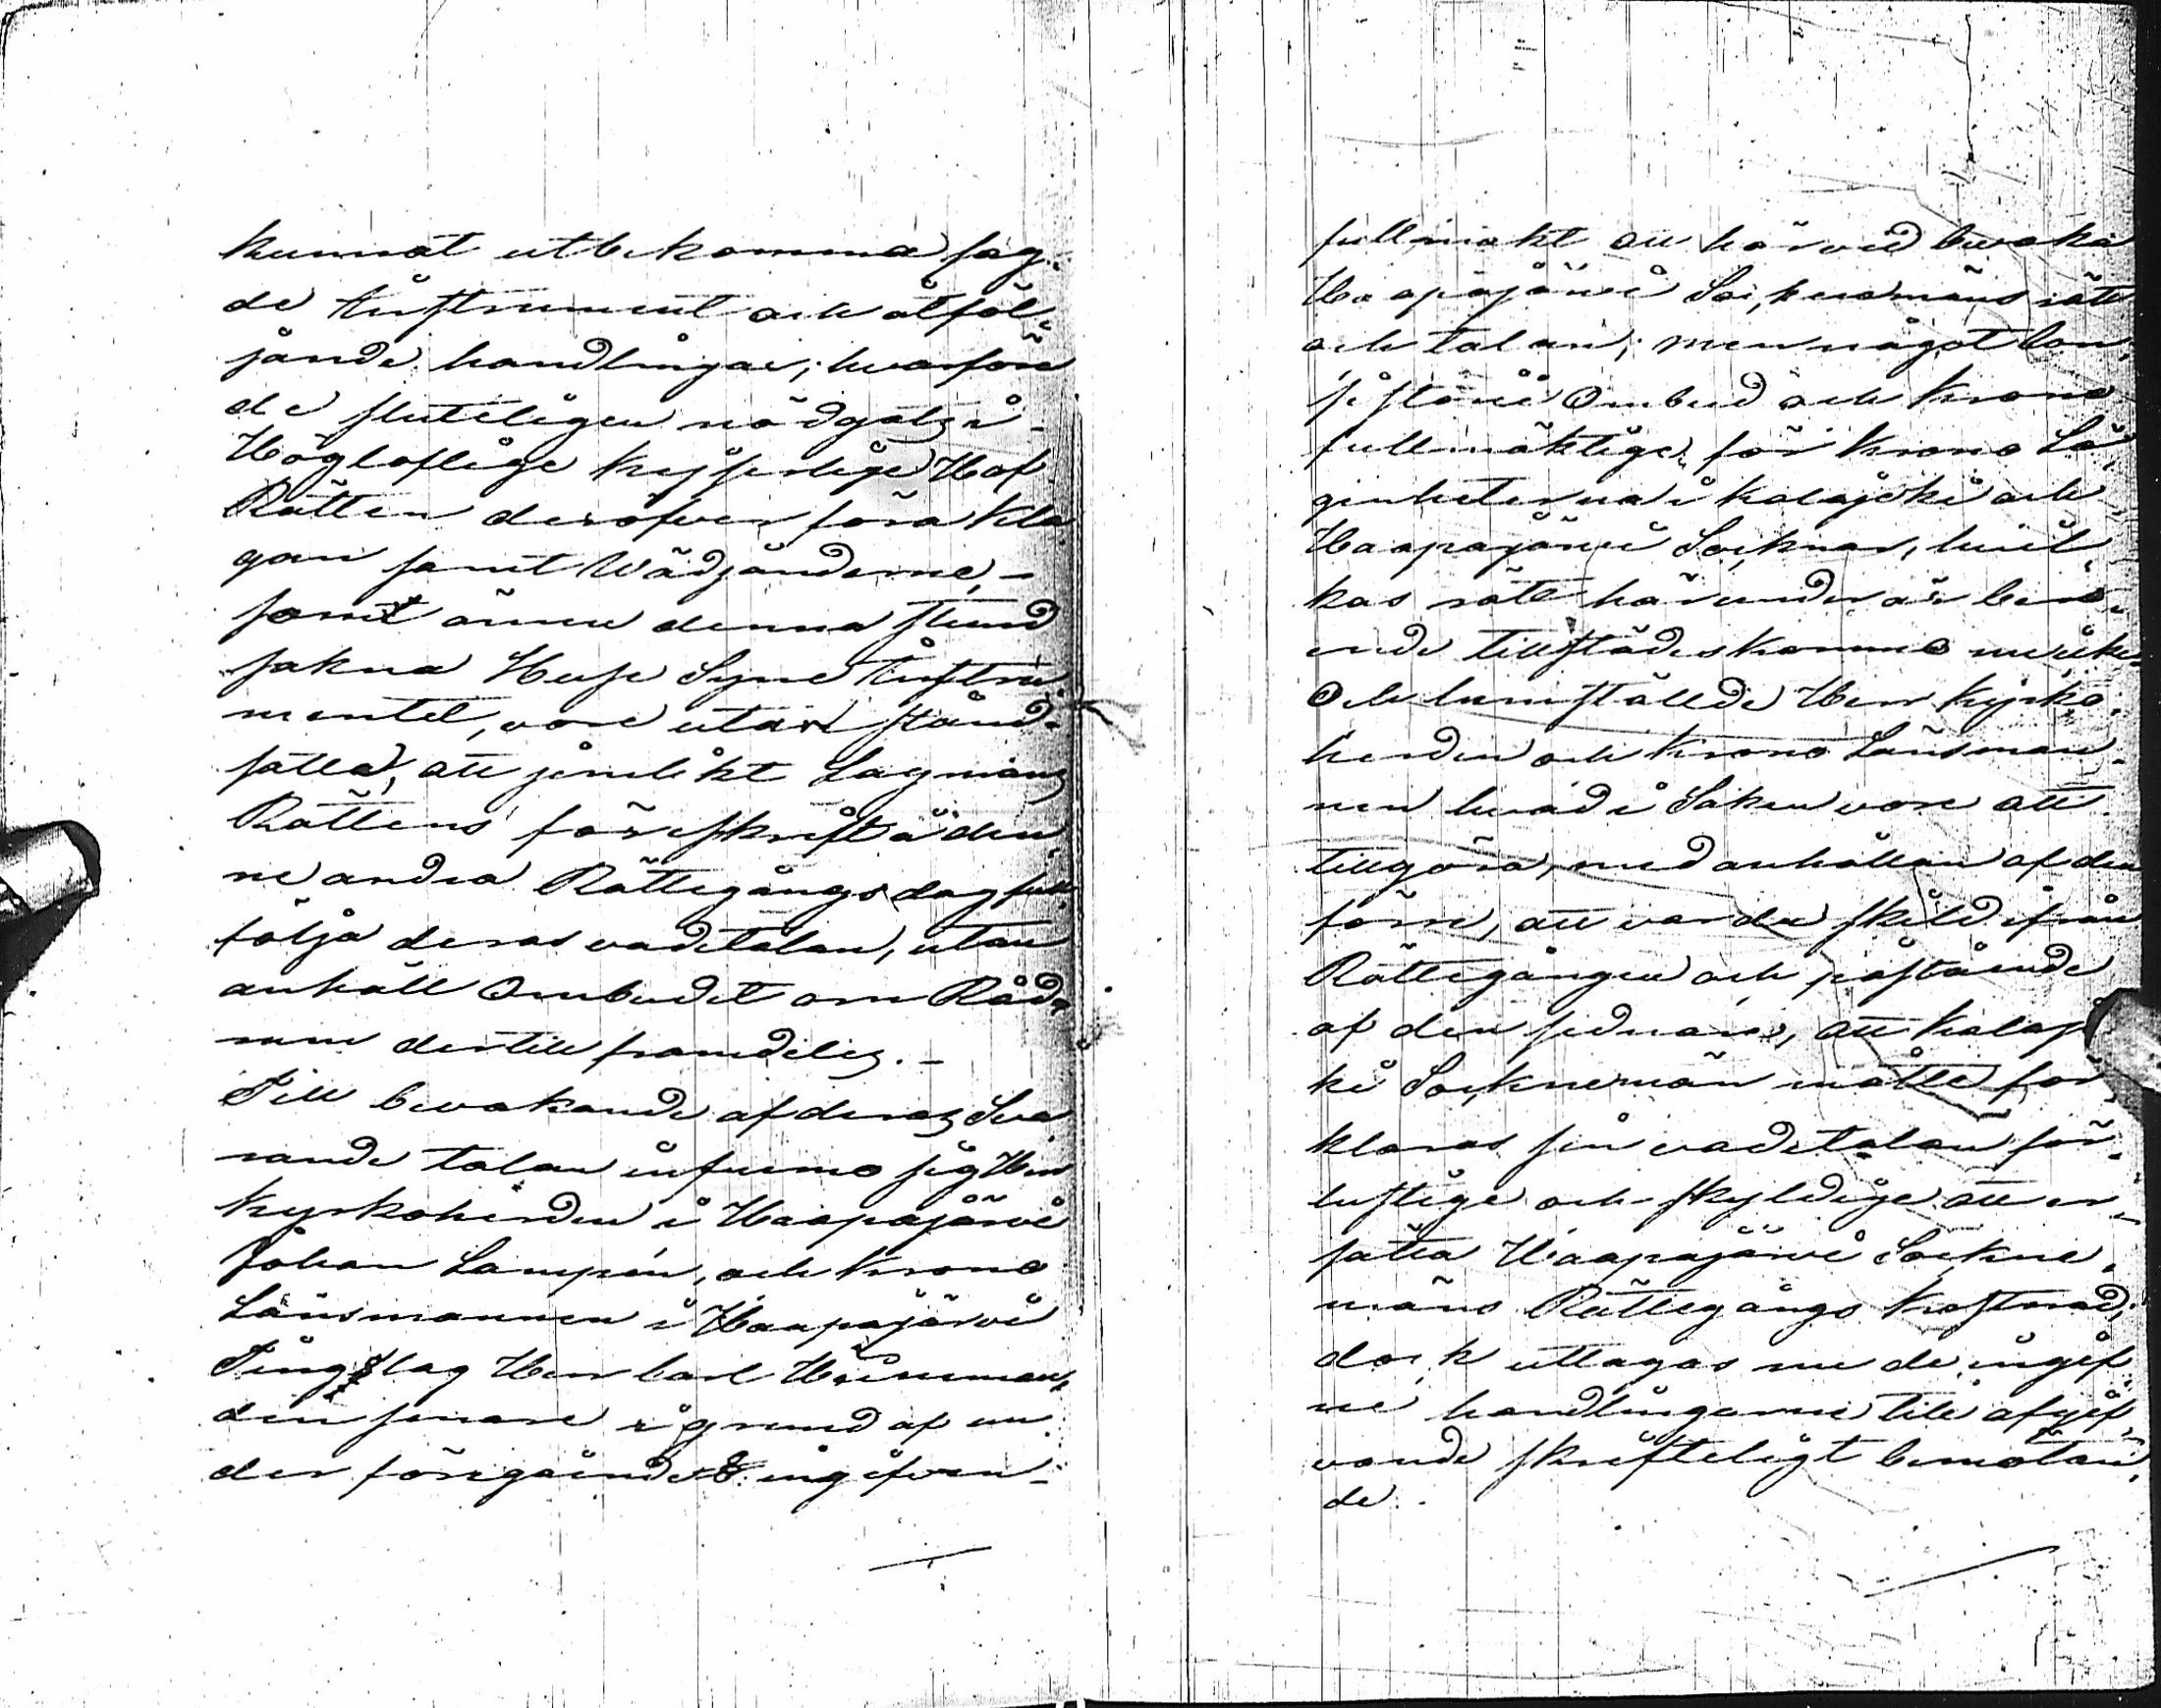 kunnat utbekomma sag-
de Instrument och åtföl-
jande handlingar; hvarföre
de sluteligen nödgatz i
Högloflige Kejserlige Hof
Rätten deröfver föra kla-
gan samt Wädjanderne,
samt ännu denna stund
sakna Huse Syne Instru-
mentet, vore utan stånd
satta, att jemlikt Lagmans
Rättens föreskrift å den-
ne andra Rättegångs dag full-
följa deras vadetalan, utan
anhöll Ombudet om Råd-
rum dertill framdeles.
Till bevakande af deras Sva-
rande talan infunno sig Herr
Kyrkoherden i Haapajärvi
Johan Lampén, och Krono
Länsmannen i Haapajärvi
Tingslag Herr Carl
den senare i grund af un-
der föregående § ingifven
fullmakt att härvid bevaka
Haapajärvi Sockenemäns rätt
och talan; men något Con-
sistorii Ombud och Krono
fullmäktige för Krono Lä-
genheterna i Kalajoki och
Haapajärvi Socknar, hvil-
kas rätt härunder är bero-
ende tillstädeskomme icke.
Och hemstälde Herr Kyrko-
herden och Krono Länsman-
nen hvad i Saken vore att
tillgöra, med anhållan af den
förre, att varda skild ifrån
Rättegången och påstående
af den sednare, att Kalajo-
ki Socknemän måtte för-
klaras sin vadetalan för-
lustige och skyldige att er-
sätta Haapajärvi Sockne-
mäns Rättegångs Kostnad;
dock uttagas nu de ingif-
ne handlingarne till afgif-
vande skrifteligt bemötan-
de.